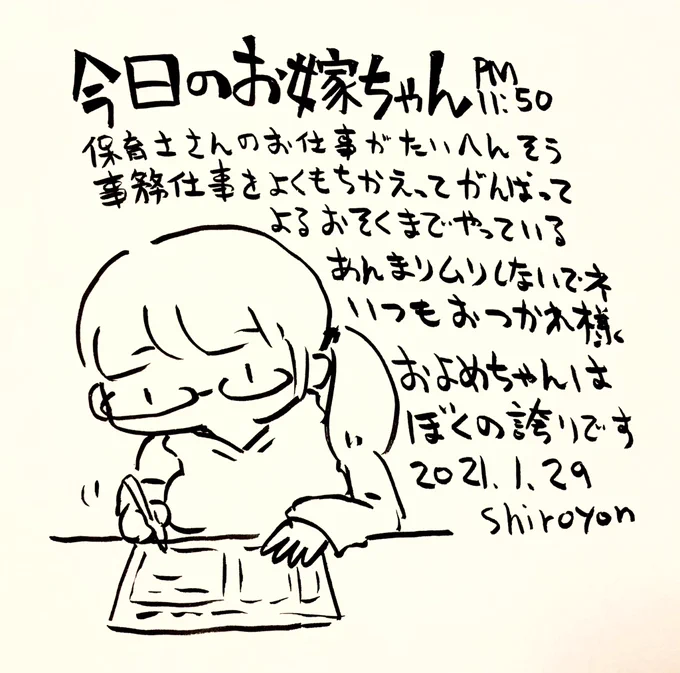 今日のお嫁ちゃん PM 11:50
保育士さんのお仕事がたいへんそう
事務仕事をよくもちかえってがんばって
よるおそくまでやっている
あんまりムリしないでネ
いつもおつかれ様。
およめちゃんは
ぼくの誇りです
2021.1.29
shiroyon